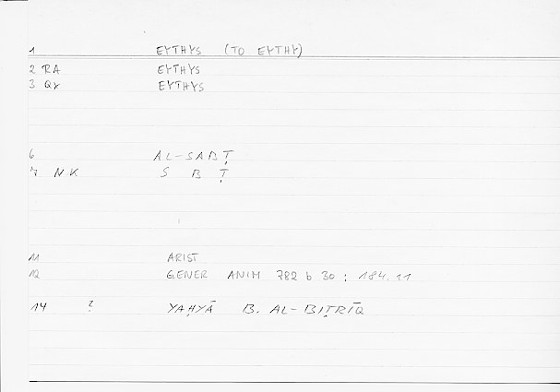 1 EYTHYS (TO EYTHY)
2 RA EYTHYS
3 QY EYTHYS
6 AL-SABṬ
7 NK S B Ṭ
11 ARIST
12 GENER ANIM 782 b 30 : 184.11
14 ? YAḤYĀ B. AL-BIṬRĪQ